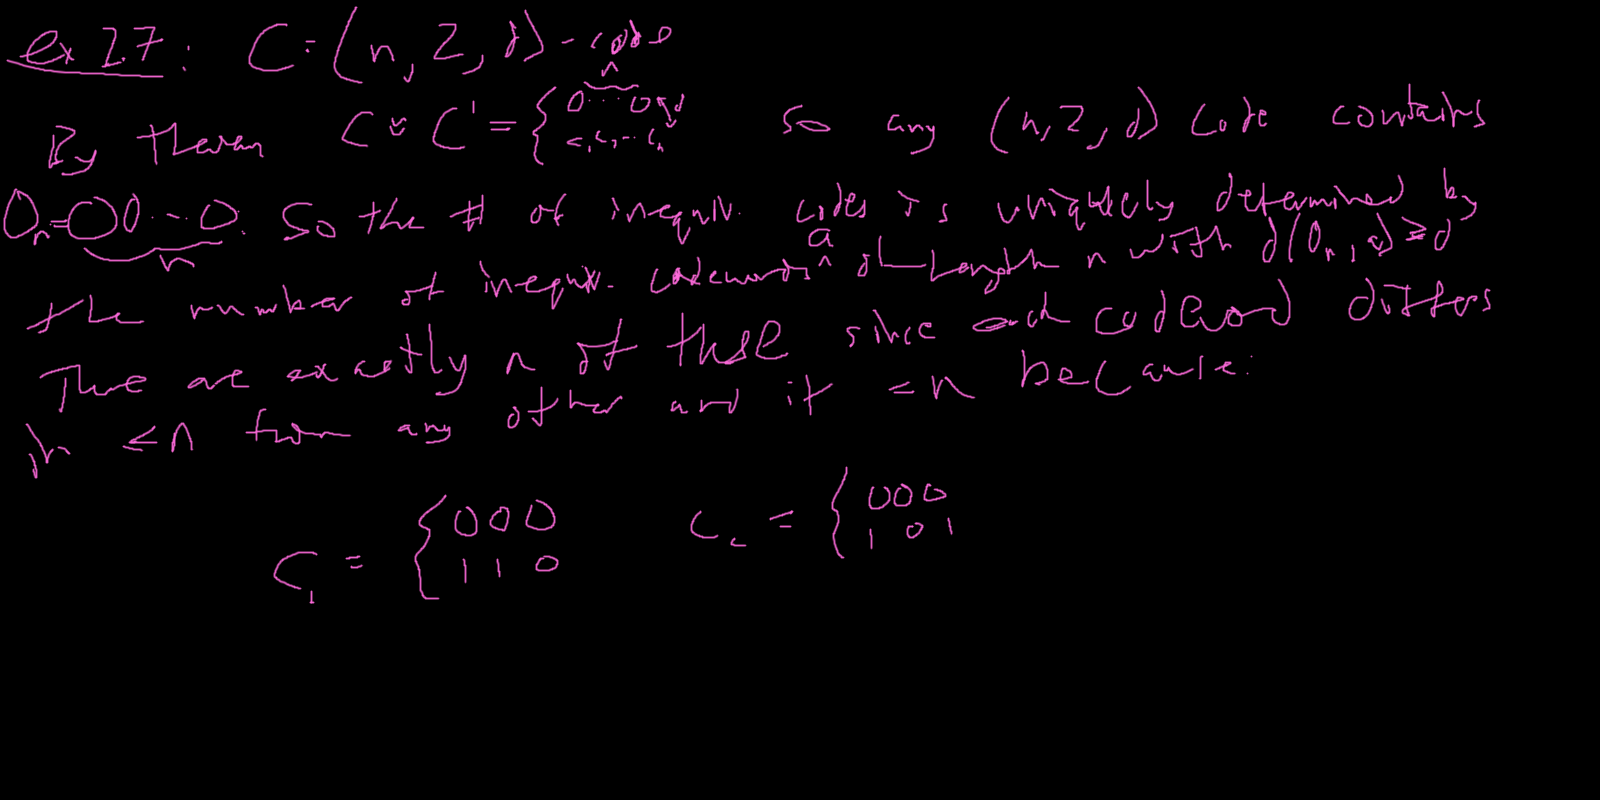 ex 2.7: C = (n, 2, d) - code
By theorem C ~ C' = { 0...0 n so any (n, 2, d) code contains
c₁c₂...cₙ
0ₙ = 00...0. So the # of inequiv. codes is uniquely determined by
n
the number of inequiv. codewords a of length n with d(0ₙ, a) ≥ d
There are exactly n of these since each codeword differs
in ≤ n from any other and it = n because:
C₁ = { 000
110
C₂ = { 000
101